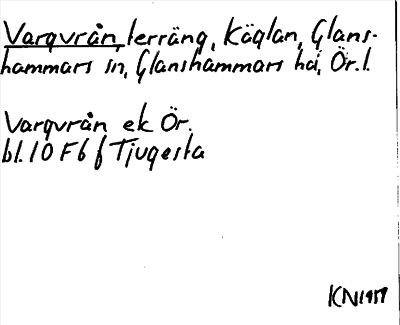 Vargvrån, terräng, Käglan, Glans-
hammars sn, Glanshammars hd, Ör. l.
Vargvrån ek Ör.
bl. 10 F 6 f Tjugesta
KN 1989